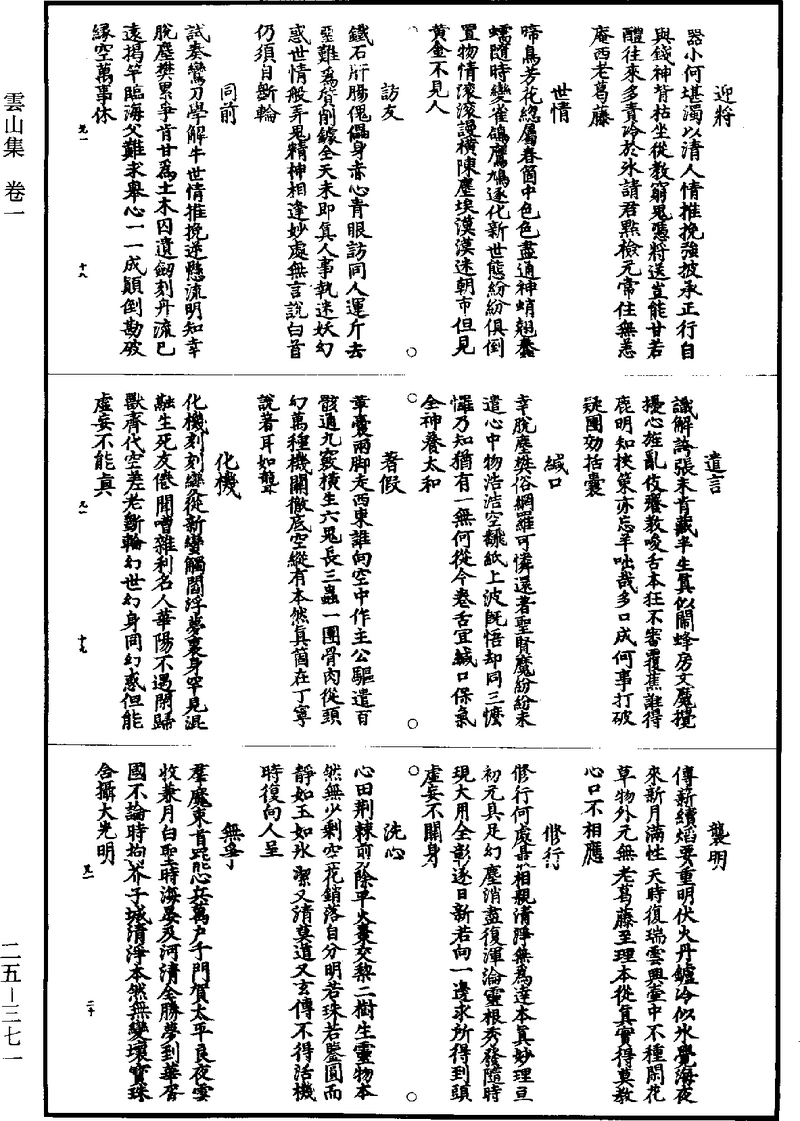 雲山集 卷一
二五—三七一
迎將
器小何堪濁以清人情推挽強披承正行自
與錢神背枯坐從教窮鬼憑將送豈能甘若
醴往來多責冷於冰請君點檢元常住無恙
庵西老葛藤
世情
啼鳥芳花總屬春箇中色色盡通神蛸翹蠢
蠕隨時變雀鴿鷹鳩逐化新世態紛紛俱倒
置物情滾滾謾橫陳塵埃漠漠迷朝市但見
黃金不見人
訪友
鐵石肝腸傀儡身赤心青眼訪同人運斤去
堊難為質削鐻全天未即真人事執迷妖幻
惑世情般弄鬼精神相逢妙處無言說白首
仍須自斲輪
同前
試奏鸞刀學解牛世情推挽逆懸流明知幸
脫塵樊累爭肯甘為土木囚遺劒刻舟流已
遠揭竿臨海父難求舉心一一成顛倒勘破
緣空萬事休
兄一
十八
遣言
識解誇張未肯藏半生真似鬧蜂房文魔攪
擾心旌亂伎癢教唆舌本狂不審覆蕉誰得
鹿明知挾策亦忘羊咄哉多口成何事打破
疑團効括囊
緘口
幸脫塵樊俗網羅可憐還著聖賢魔紛紛未
遣心中物浩浩空飜紙上波既悟却同三㦄
㦬乃知猶有一無何從今卷舌宜緘口保氣
全神養太和
著假
革囊兩脚走西東誰向空中作主公驅遣百
骸通九竅橫生六鬼長三蟲一團骨肉從頭
幻萬種機關徹底空縱有本然真箇在丁寧
說著耳如聾
化機
化機刻刻變從新蠻觸閻浮夢裏身罕見混
融生死友倦聞嘈雜利名人華陽不遇閉歸
獸齊代空差老斲輪幻世幻身同幻惑但能
虛妄不能真
兄一
十九
襲明
傳薪續焰要重明伏火丹鑪冷似冰覺海夜
來新月滿性天時復瑞雲興壺中不種閑花
草物外元無老葛藤至理本從真實得莫教
心口不相應
修行
修行何處最相親清淨無為達本真妙理亘
初元具足幻塵消盡復渾淪靈根秀發隨時
現大用全彰逐日新若向一邊求所得到頭
虛妄不關身
洗心
心田荆棘剪除平火棗交梨二樹生靈物本
然無少剩空花銷落自分明若珠若鑒圓而
靜如玉如冰潔又清莫道又玄傳不得活機
時復向人呈
無爭
羣魔束首罷心兵萬戶千門賀太平良夜雲
收兼月白聖時海晏及河清全勝夢到華胥
國不論時拘芥子城清淨本然無變壞寶珠
含攝大光明
兄一
二十